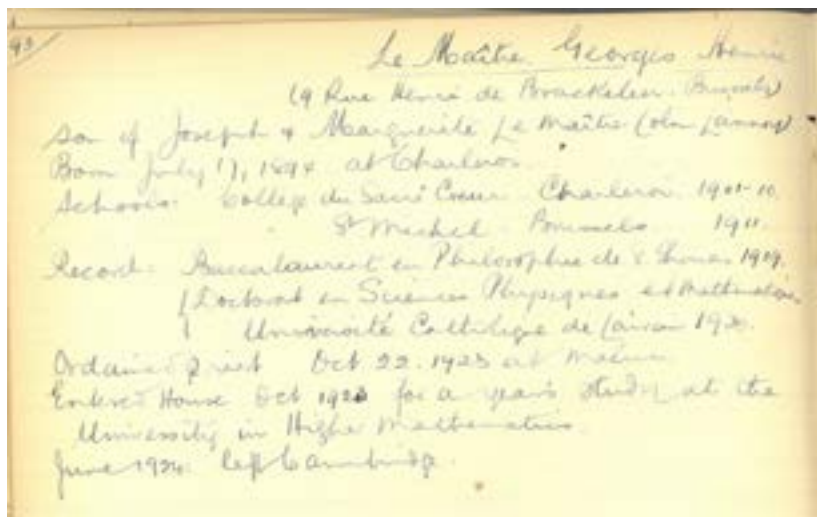 93
Le Maître Georges Henri
(9 Rue Henri de Braekeleer. Brussels)
Son of Joseph & Marguerite Le Maître (olim Lannoy)
Born July 17, 1894 at Charleroi
Schools. College du Sacré Coeur Charleroi 1901-10.
St Michel. Brussels 1911.
Record: Baccalaureat en Philosophie de S. Thomas 1919.
(Doctorat en Sciences Physiques et
( Université de Louvain 1920.
Ordained Priest Oct 22. 1923 at
Entered House Oct 1923 for a year's study at the
University in Higher Mathematics
June 1924. left Cambridge.